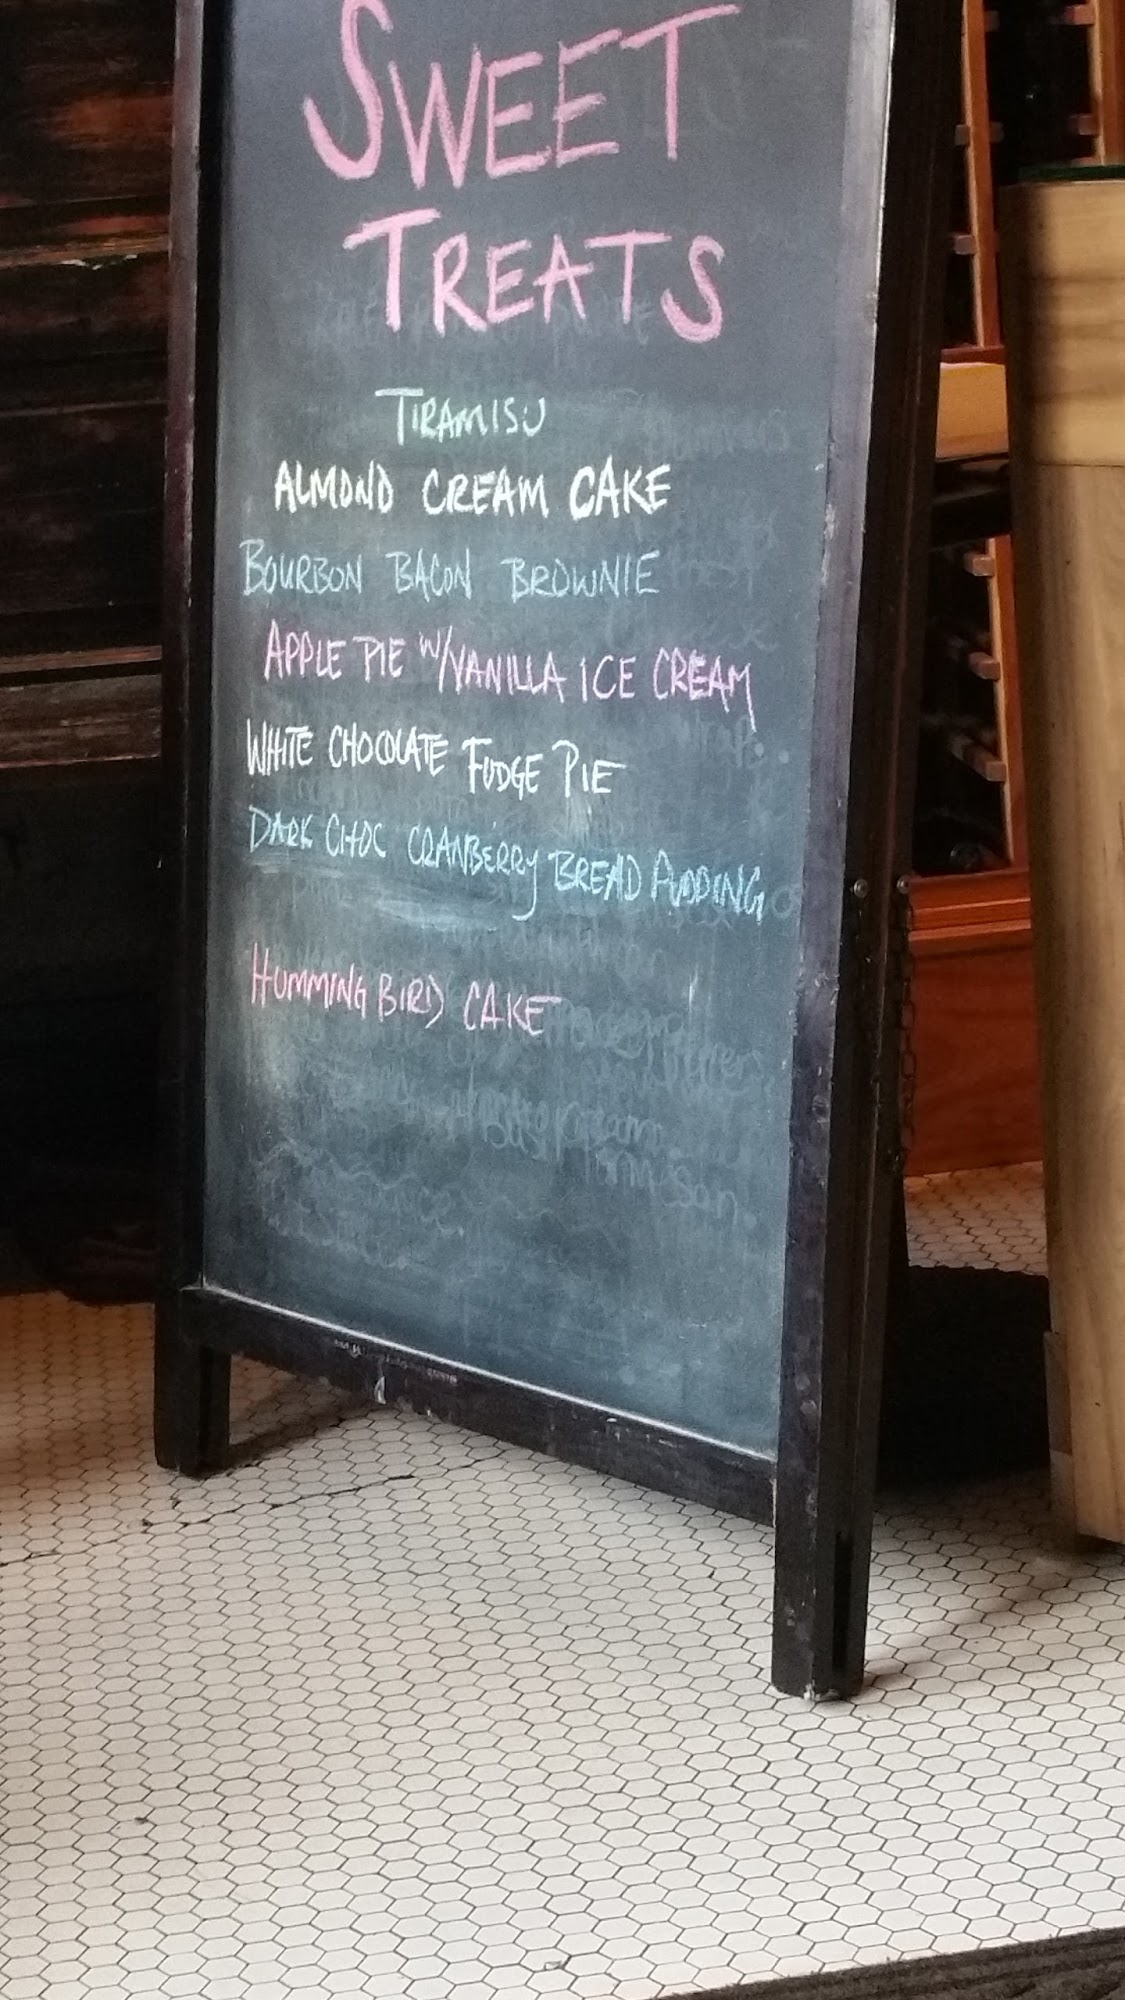 SWEET
TREATS
TIRAMISU
ALMOND CREAM CAKE
BOURBON BACON BROWNIE
APPLE PIE W/VANILLA ICE CREAM
WHITE CHOCOLATE FUDGE PIE
DARK CHOC CRANBERRY BREAD PUDDING
HUMMING BIRD CAKE